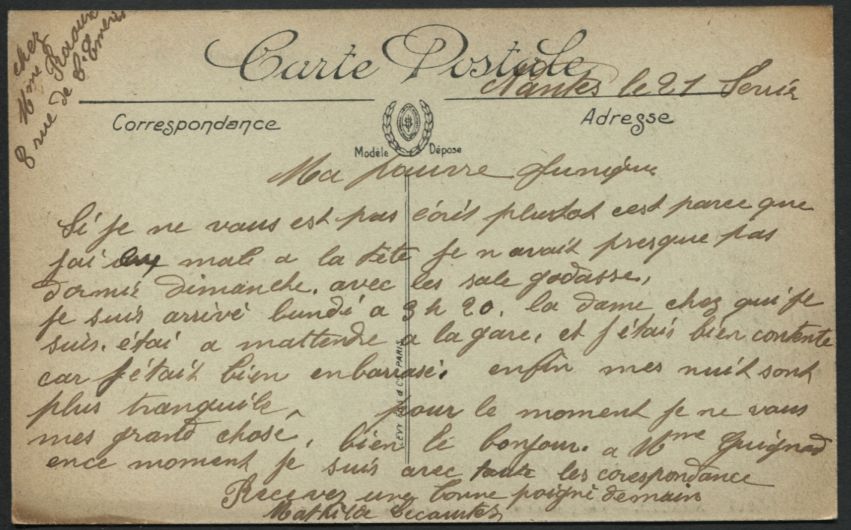 chez
Mme
8 rue de
Carte Postale
Nantes le 21
Correspondance
Adresse
Modèle Déposé
Ma pauvre
Si je ne vous est pas écrit plustot cest parce que
jai eu male a la tête je navait presque pas
dormie dimanche. avec les sale godasse,
je suis arrivé lundi a 3 h 20. la dame chez qui je
suis. étai a mattendre a la gare, et j'étais bien contente
car j'était bien enbarrasé. enfin mes nuit sont
plus tranquile, pour le moment je ne vous
mes grand chose, bien le bonjour. a Mme
ence moment je suis avec toute les corespondance
Recevez une bonne poigné demain
Mathilde
LEVY FILS & Cie PARIS